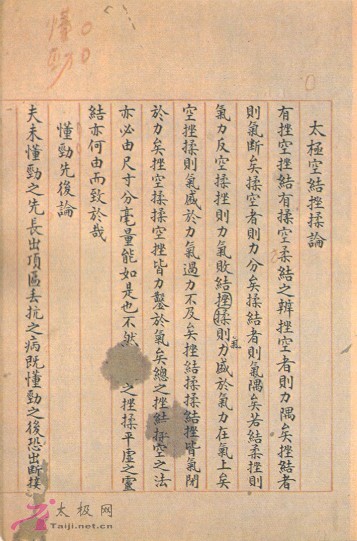 懂
勁
太極空結挫揉論
有挫空挫結有揉空揉結之辨挫空者則力隅矣挫結者
則氣斷矣揉空者則力分矣揉結者則氣隅矣若結柔挫則
氣力反空揉挫則力氣敗結挫揉則力盛於氣力在氣上矣
空挫揉則氣盛於力氣過力不及矣挫結揉揉結挫皆氣閉
於力矣挫空揉揉空挫皆力鑿於氣矣總之挫結揉空之法
亦必由尺寸分毫量能如是也不然 之挫揉平虛之靈
結亦何由而致於哉
懂勁先後論
夫未懂勁之先長出頂匾丟抗之病既懂勁之後恐出斷接
太极网
Taiji.net.cn